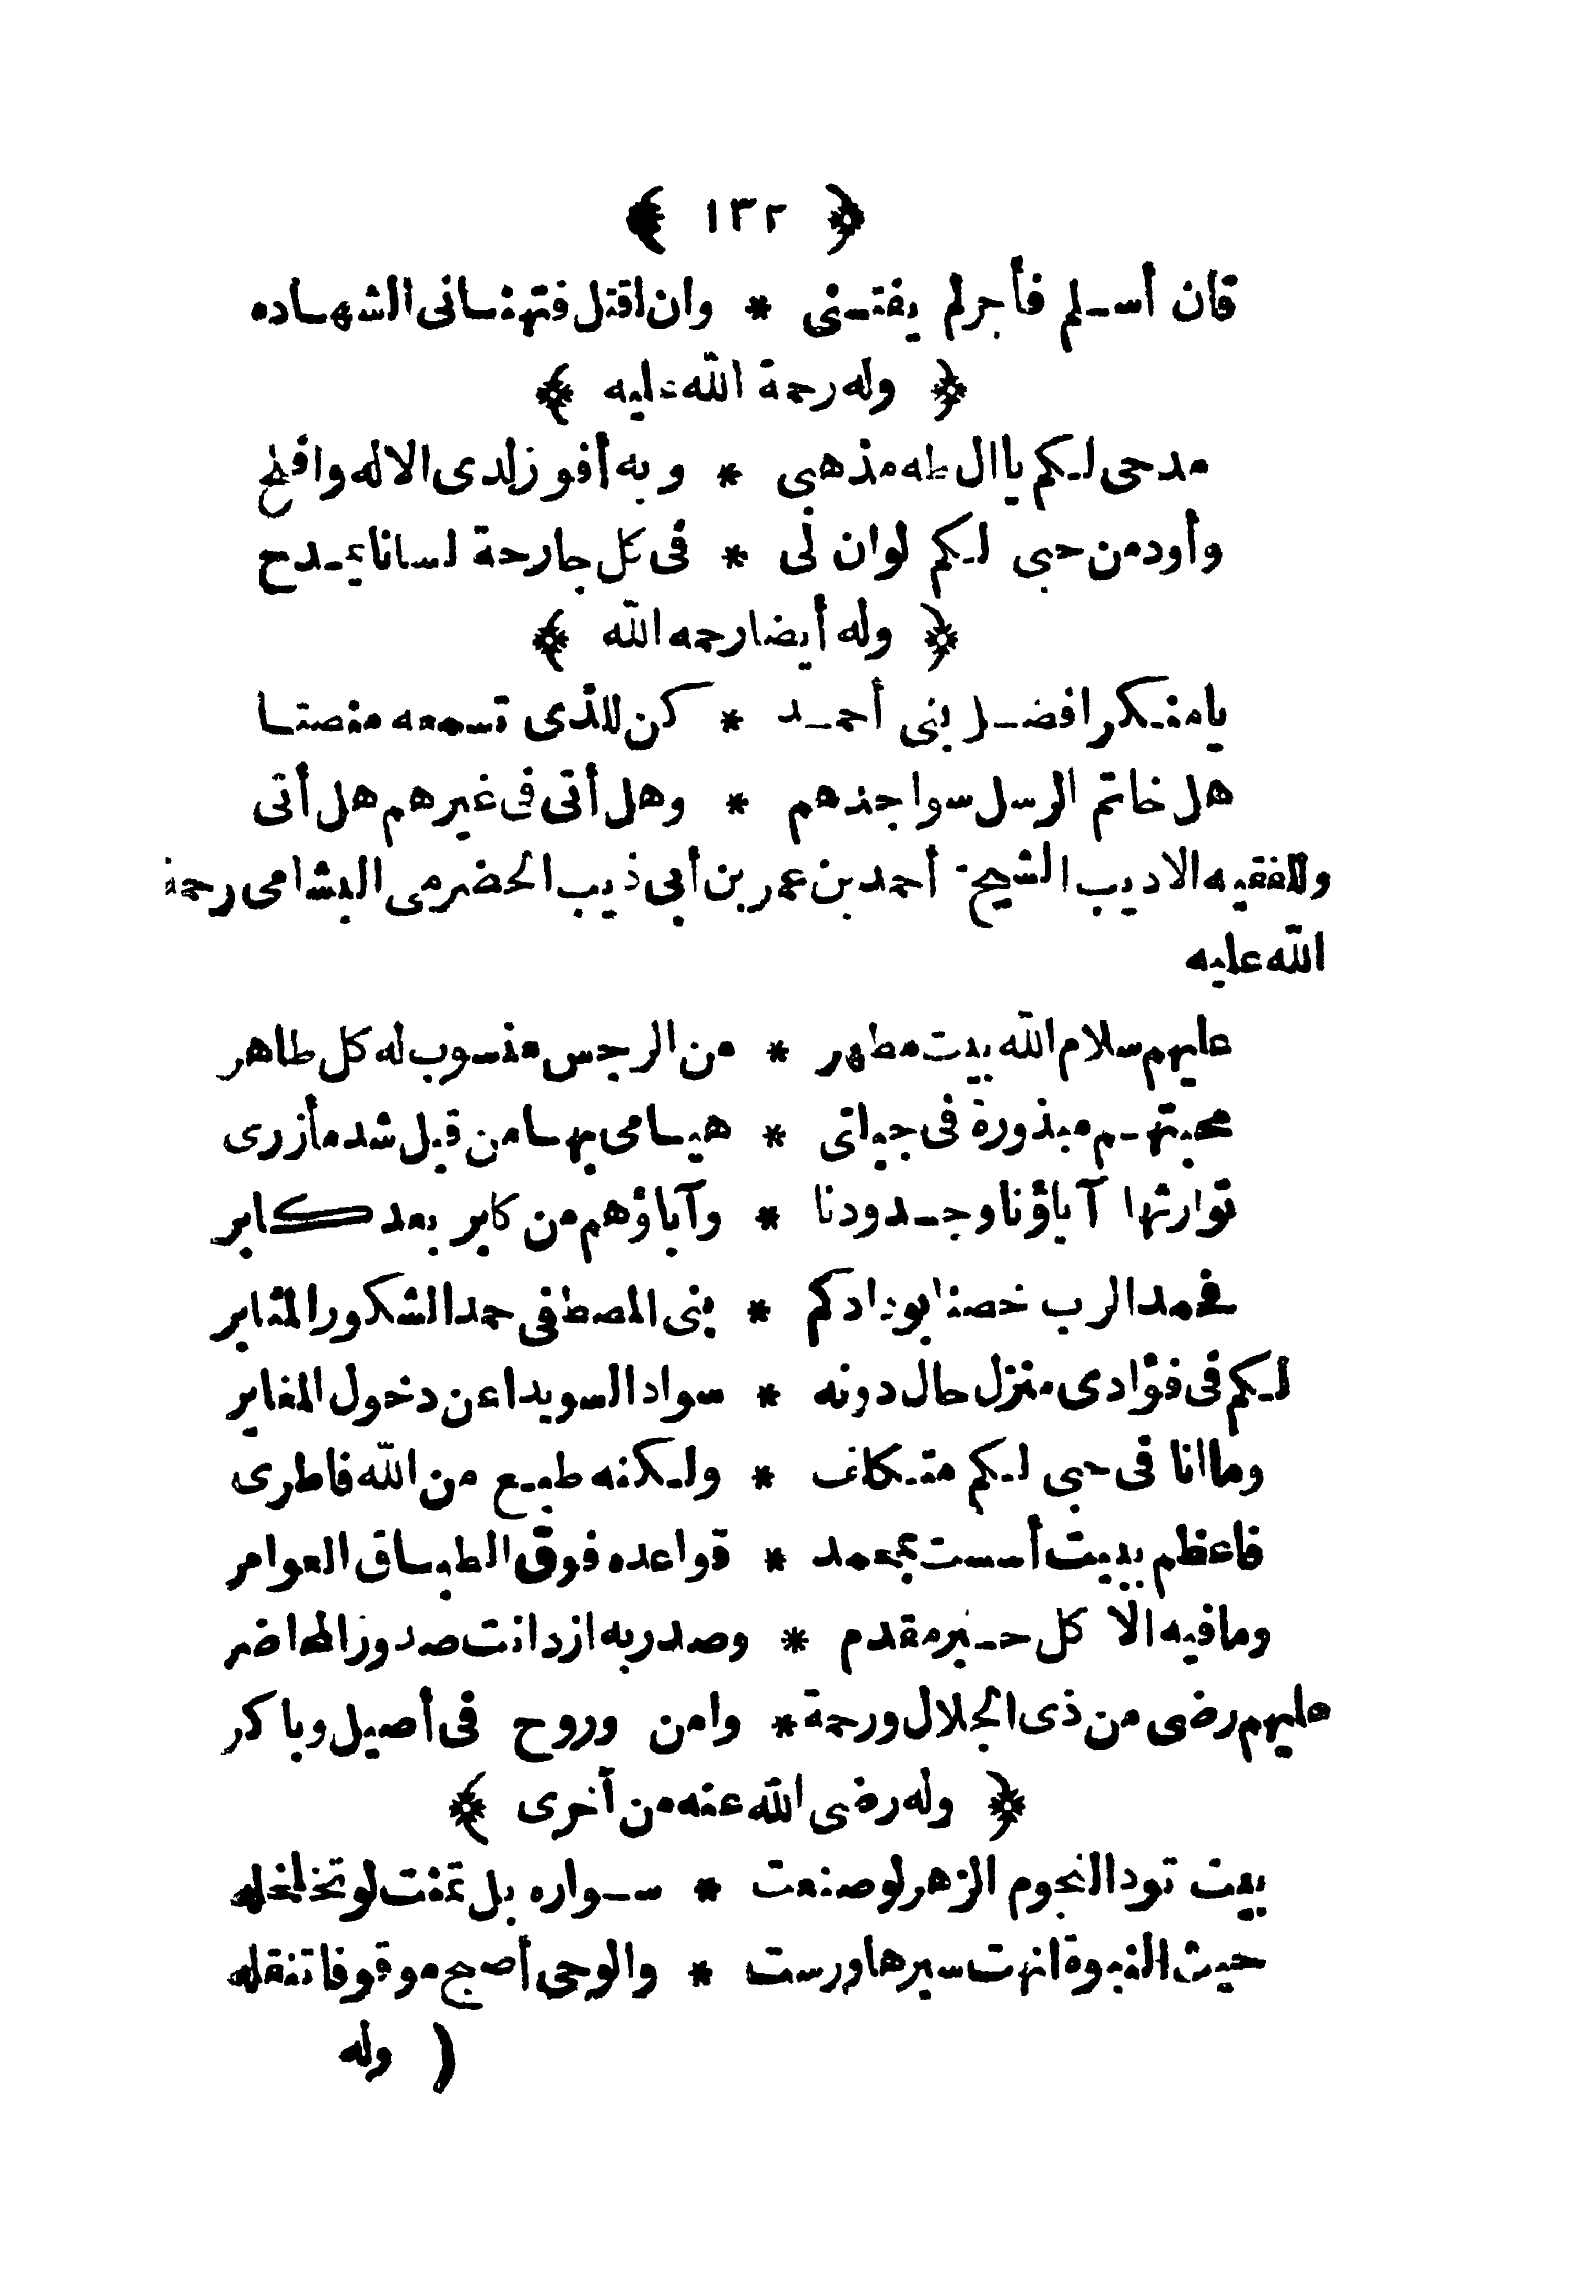 ﴿ ١٣٢ ﴾
فان أسلم فأجر لم يفتنى * وان اقتل فتهنانى الشهاده
﴿ وله رحمة الله عليه ﴾
مدحى لكم ياال طه مذهبى * وبه أفوز لدى الاله وافلح
وأود من حبى لكم لو ان لى * فى كل جارحة لسانا يمدح
﴿ وله أيضا رحمه الله ﴾
يا منكرا فضل بنى أحمد * كن للذى تسمعه منصتا
هل خاتم الرسل سوا جدهم * وهل أتى فى غيرهم هل أتى
وللفقيه الاديب الشيخ أحمد بن عمر بن أبى ذيب الحضرمى الشامى رحمة
الله عليه
عليهم سلام الله بيت مطهر * من الرجس منسوب له كل طاهر
محبتهم مبذورة فى جياتى * هيامى بها من قبل شد مأزرى
توارثها آباؤنا وجدودنا * وآباؤهم من كابر بعد كابر
فحمدا لرب خصنا بودادكم * بنى المصطفى حمد الشكور المثابر
لكم فى فؤادى منزل حال دونه * سواد السويدا عن دخول المغاير
وما انا فى حبى لكم متكلف * ولكنه طبع من الله فاطرى
فاعظم ببيت أسست بمحمد * قواعده فوق الطباق العوامر
وما فيه الّا كل حبر مقدم * وصدر به ازدانت صدور المحاضر
عليهم رضى من ذى الجلال ورحمة * وامن وروح فى أصيل وباكر
﴿ وله رضى الله عنه من آخرى ﴾
بيت تود النجوم الزهر لو صنعت * سواره بل تمنت لو تخلخله
حيث النبوة انهت سيرها ورست * والوحى أصبح موقوفا تنقله
( وله